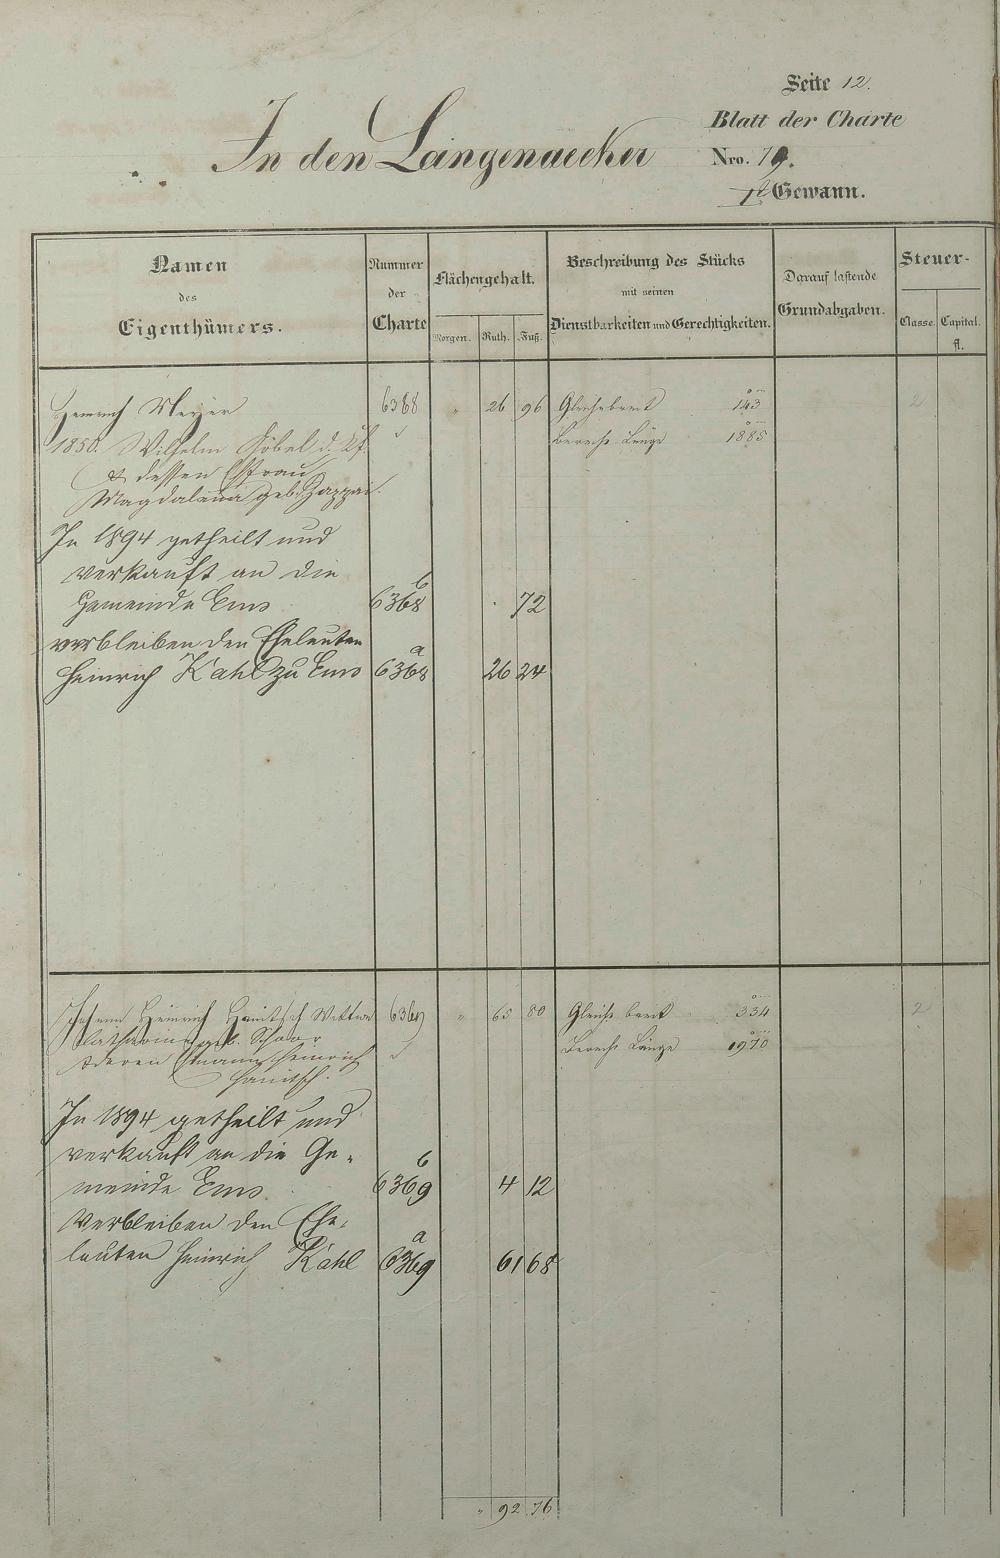 Seite 12.
Blatt der Charte
In den Langenaecker
Nro. 19.
1t Gewann.
Namen
des
Eigenthümers.
Nummer
der
Charte
Flächengehalt.
Morgen. Ruth. Fuß.
Beschreibung des Stücks
mit seinen
Dienstbarkeiten und Gerechtigkeiten.
Darauf lastende
Grundabgaben.
Steuer-
Classe. Capital.
fl.
Heinrich Meyer 6368 " 26 96 Gleichebreit 143 2
1850. Wilhelm Göbel d. Berechn. Länge 1885
& dessen Ehefrau
Magdalena geb.
In 1894 getheilt und
verkauft an die
Gemeinde Ems 6368 b 72
verbleiben den Eheleuten
Heinrich Kahl zu Ems 6368 a 26 24
Johann Heinrich Hanitsch Wittwe 6369 " 65 80 Gleiche breit 334 2
Katharina geb. Berechn. Länge 1970
& deren Ehemann Heinrich
Hanitsch.
In 1894 getheilt und
verkauft an die Ge-
meinde Ems 6369 b 4 12
Verbleiben den Ehe-
leuten Heinrich Kahl 6369 a 61 68
" 92 76